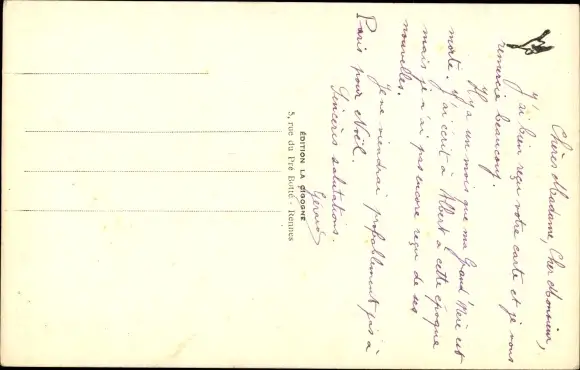 Chères Madame, Cher Monsieur,
J'ai bien reçu votre carte et je vous
remercie beaucoup.
Il y a un mois que ma Grand' Mère est
morte. J'ai écrit à Albert à cette époque
mais je n'ai pas encore reçu de ses
nouvelles.
Je ne viendrai probablement pas à
Paris pour Noël.
Sincères salutations.
Gérard
ÉDITION LA CIGOGNE
5, rue du Pré Botté - Rennes